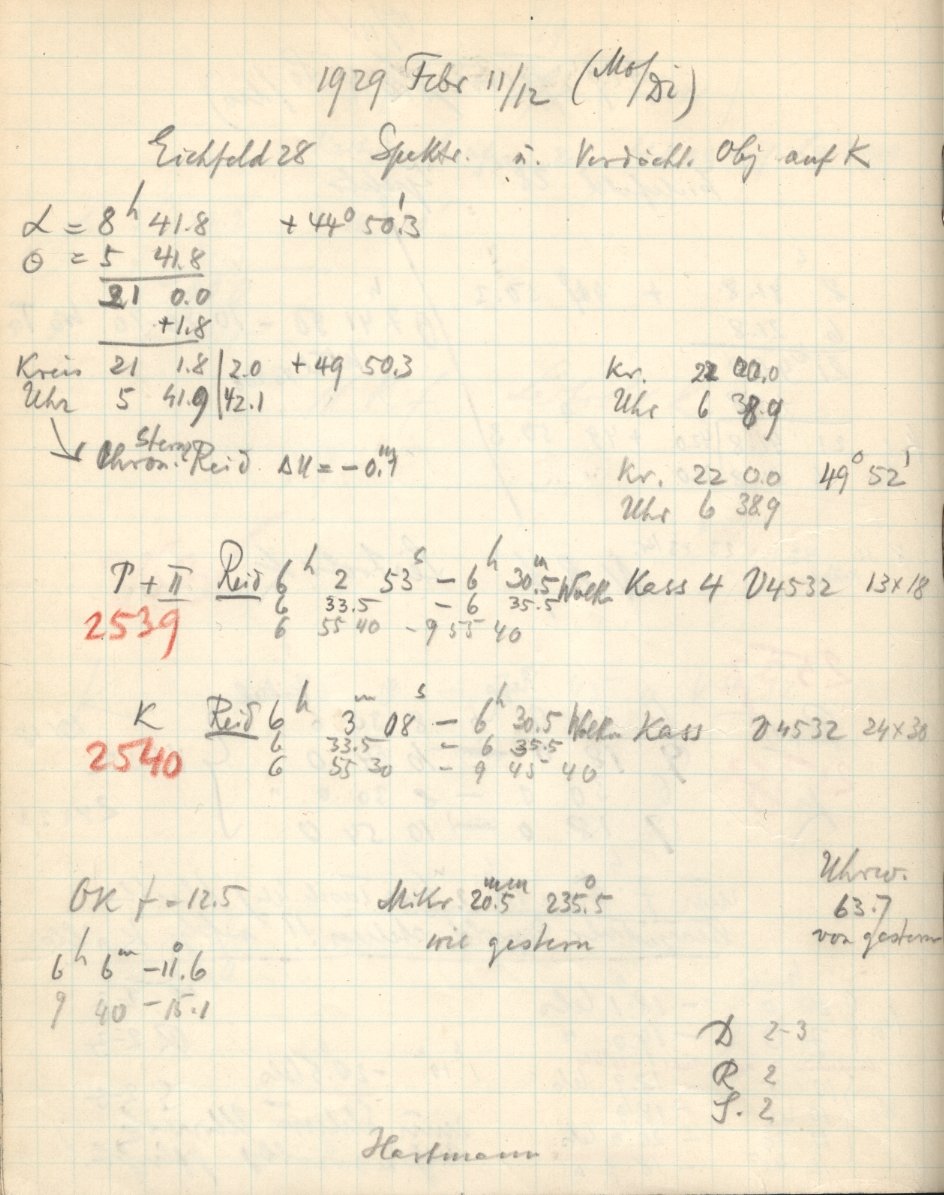 1929 Febr 11/12 (Mo/Di)
Eichfeld 28 Spektr. u. Verdächt. Obj auf K
α = 8h 41.8 +44° 50.'3
θ = 5 41.8
21 0.0
+1.8
Kreis 21 1.8 | 2.0 +49 50.3
Uhr 5 41.9 | 42.1
Kr. 22 0.0
Uhr 6 38.9
Stern
Chron. Reid ΔU = -0.m1
Kr. 22 0.0 49° 52'
Uhr 6 38.9
T + II Reid 6h 2 53s - 6h 30.m5 Wolken Kass 4 V4532 13x18
6 33.5 - 6 35.5
2539 6 55 40 - 9 55 40
K Reid 6h 3m 08s - 6h 30.5 Wolken Kass V4532 24x30
6 33.5 - 6 35.5
2540 6 55 30 - 9 45 40
Uhrw.
OK f - 12.5 Mikr 20.5mm 235.°5 63.7
wie gestern von gestern
6h 6m -11.°6
9 40 -15.1
D 2-3
R 2
S. 2
Hartmann